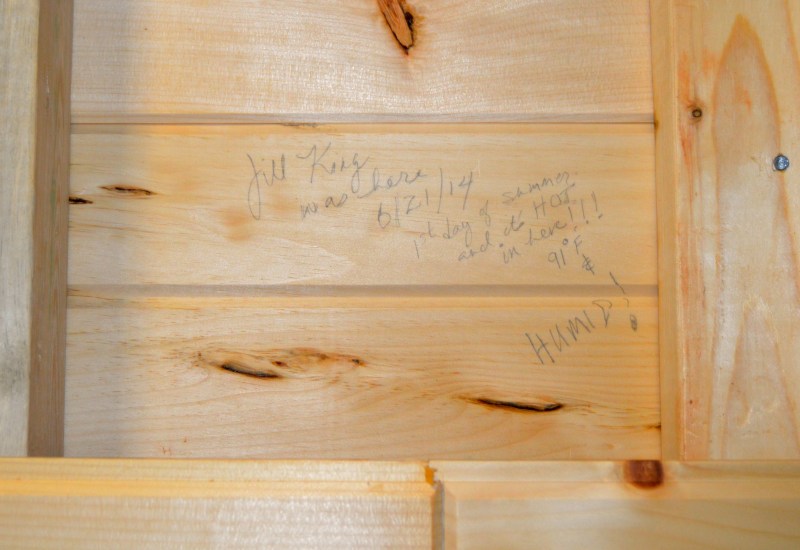 Jill King
was here
6/21/14
1st day of summer
and it's HOT
in here!!!
91°F
&
HUMID!